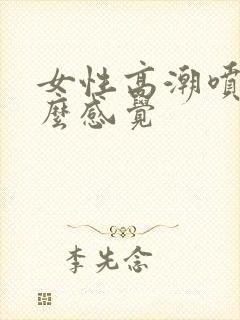 女性高潮噴
麼感覺
李先念